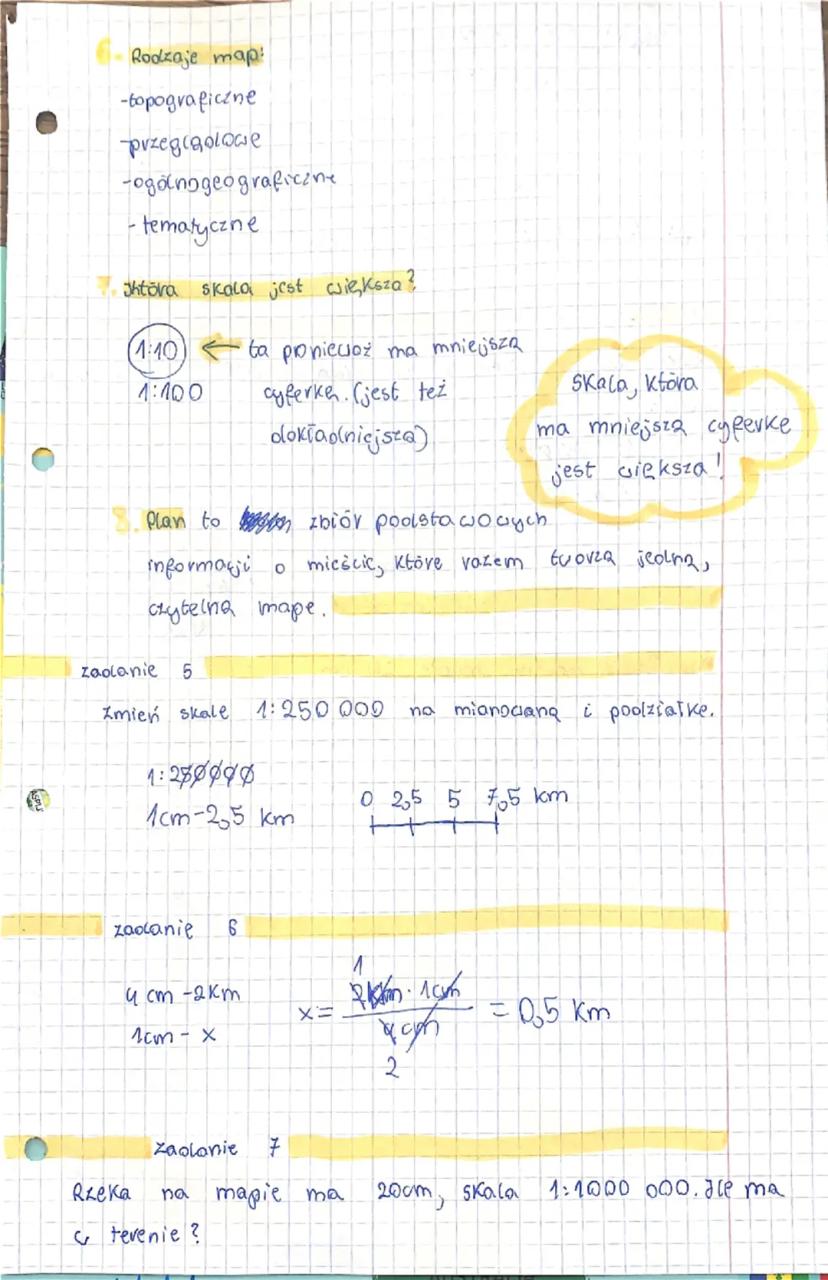 6. Rodzaje map:
-topograficzne
-przeglądowe
-ogólnogeograficzne
- tematyczne
7. Która skala jest większa?
1:10 ← ta ponieważ ma mniejszą
1:100 cyferkę. (jest też
dokładniejsza)
Skala, która
ma mniejszą cyferkę
jest większa!
8. Plan to zbiór podstawowych
informacji o mieście, które razem tworzą jedną,
czytelną mapę.
zadanie 5
Zmień skale 1:250 000 na mianowaną i podziałkę.
1:250000
1cm-2,5 km
0 2,5 5 7,5 km
zadanie 6
4 cm -2km
1cm - x
x = 2km · 1cm / 4cm = 0,5 km
1
2
zadanie 7
Rzeka na mapie ma 20cm, skala 1:1000 000. Ile ma
w terenie?